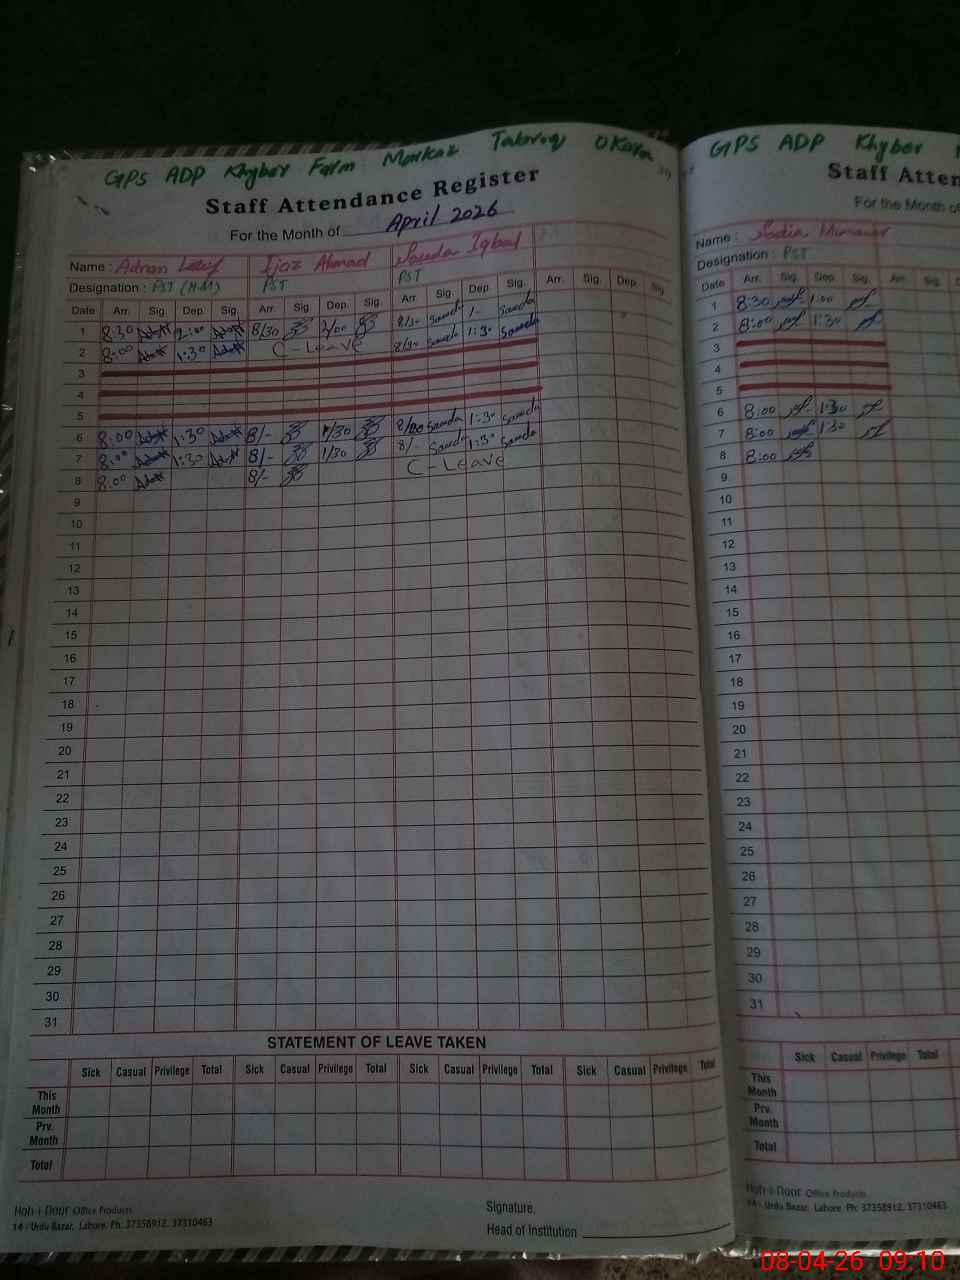 GPS ADP Khyber Farm Markaz Tabroq Okara
Staff Attendance Register
For the Month of April 2026
Name: Adnan Latif Ijaz Ahmad Sauda Iqbal
Designation: PST (H.M) PST PST
Date Arr. Sig. Dep. Sig. Arr. Sig. Dep. Sig. Arr. Sig. Dep. Sig. Arr. Sig. Dep. Sig.
1 8:30 2:00 8/30 2/00 8/30 Sauda 1- Sauda
2 8:00 1:30 C-Leave 8/30 Sauda 1:30 Sauda
3
4
5
6 8:00 1:30 8/- 1/30 8/00 Sauda 1:30 Sauda
7 8:00 1:30 8/- 1/30 8/- Sauda 1:30 Sauda
8 8:00 8/- C-Leave
9
10
11
12
13
14
15
16
17
18
19
20
21
22
23
24
25
26
27
28
29
30
31
STATEMENT OF LEAVE TAKEN
Sick Casual Privilege Total Sick Casual Privilege Total Sick Casual Privilege Total Sick Casual Privilege Total
This Month
Prv. Month
Total
Koh-i-Noor Office Products
14 - Urdu Bazar, Lahore. Ph: 37358912, 37310463
Signature.
Head of Institution
39
GPS ADP Khyber
Staff Atten
For the Month of
Name: Sadia Munawar
Designation: PST
Date Arr. Sig. Dep. Sig. Arr. Sig.
1 8:30 1:00
2 8:00 1:30
3
4
5
6 8:00 1:30
7 8:00 1:30
8 8:00
9
10
11
12
13
14
15
16
17
18
19
20
21
22
23
24
25
26
27
28
29
30
31
Sick Casual Privilege Total
This Month
Prv. Month
Total
Koh-i-Noor Office Products
14 - Urdu Bazar, Lahore. Ph: 37358912, 37310463
08-04-26 09:10